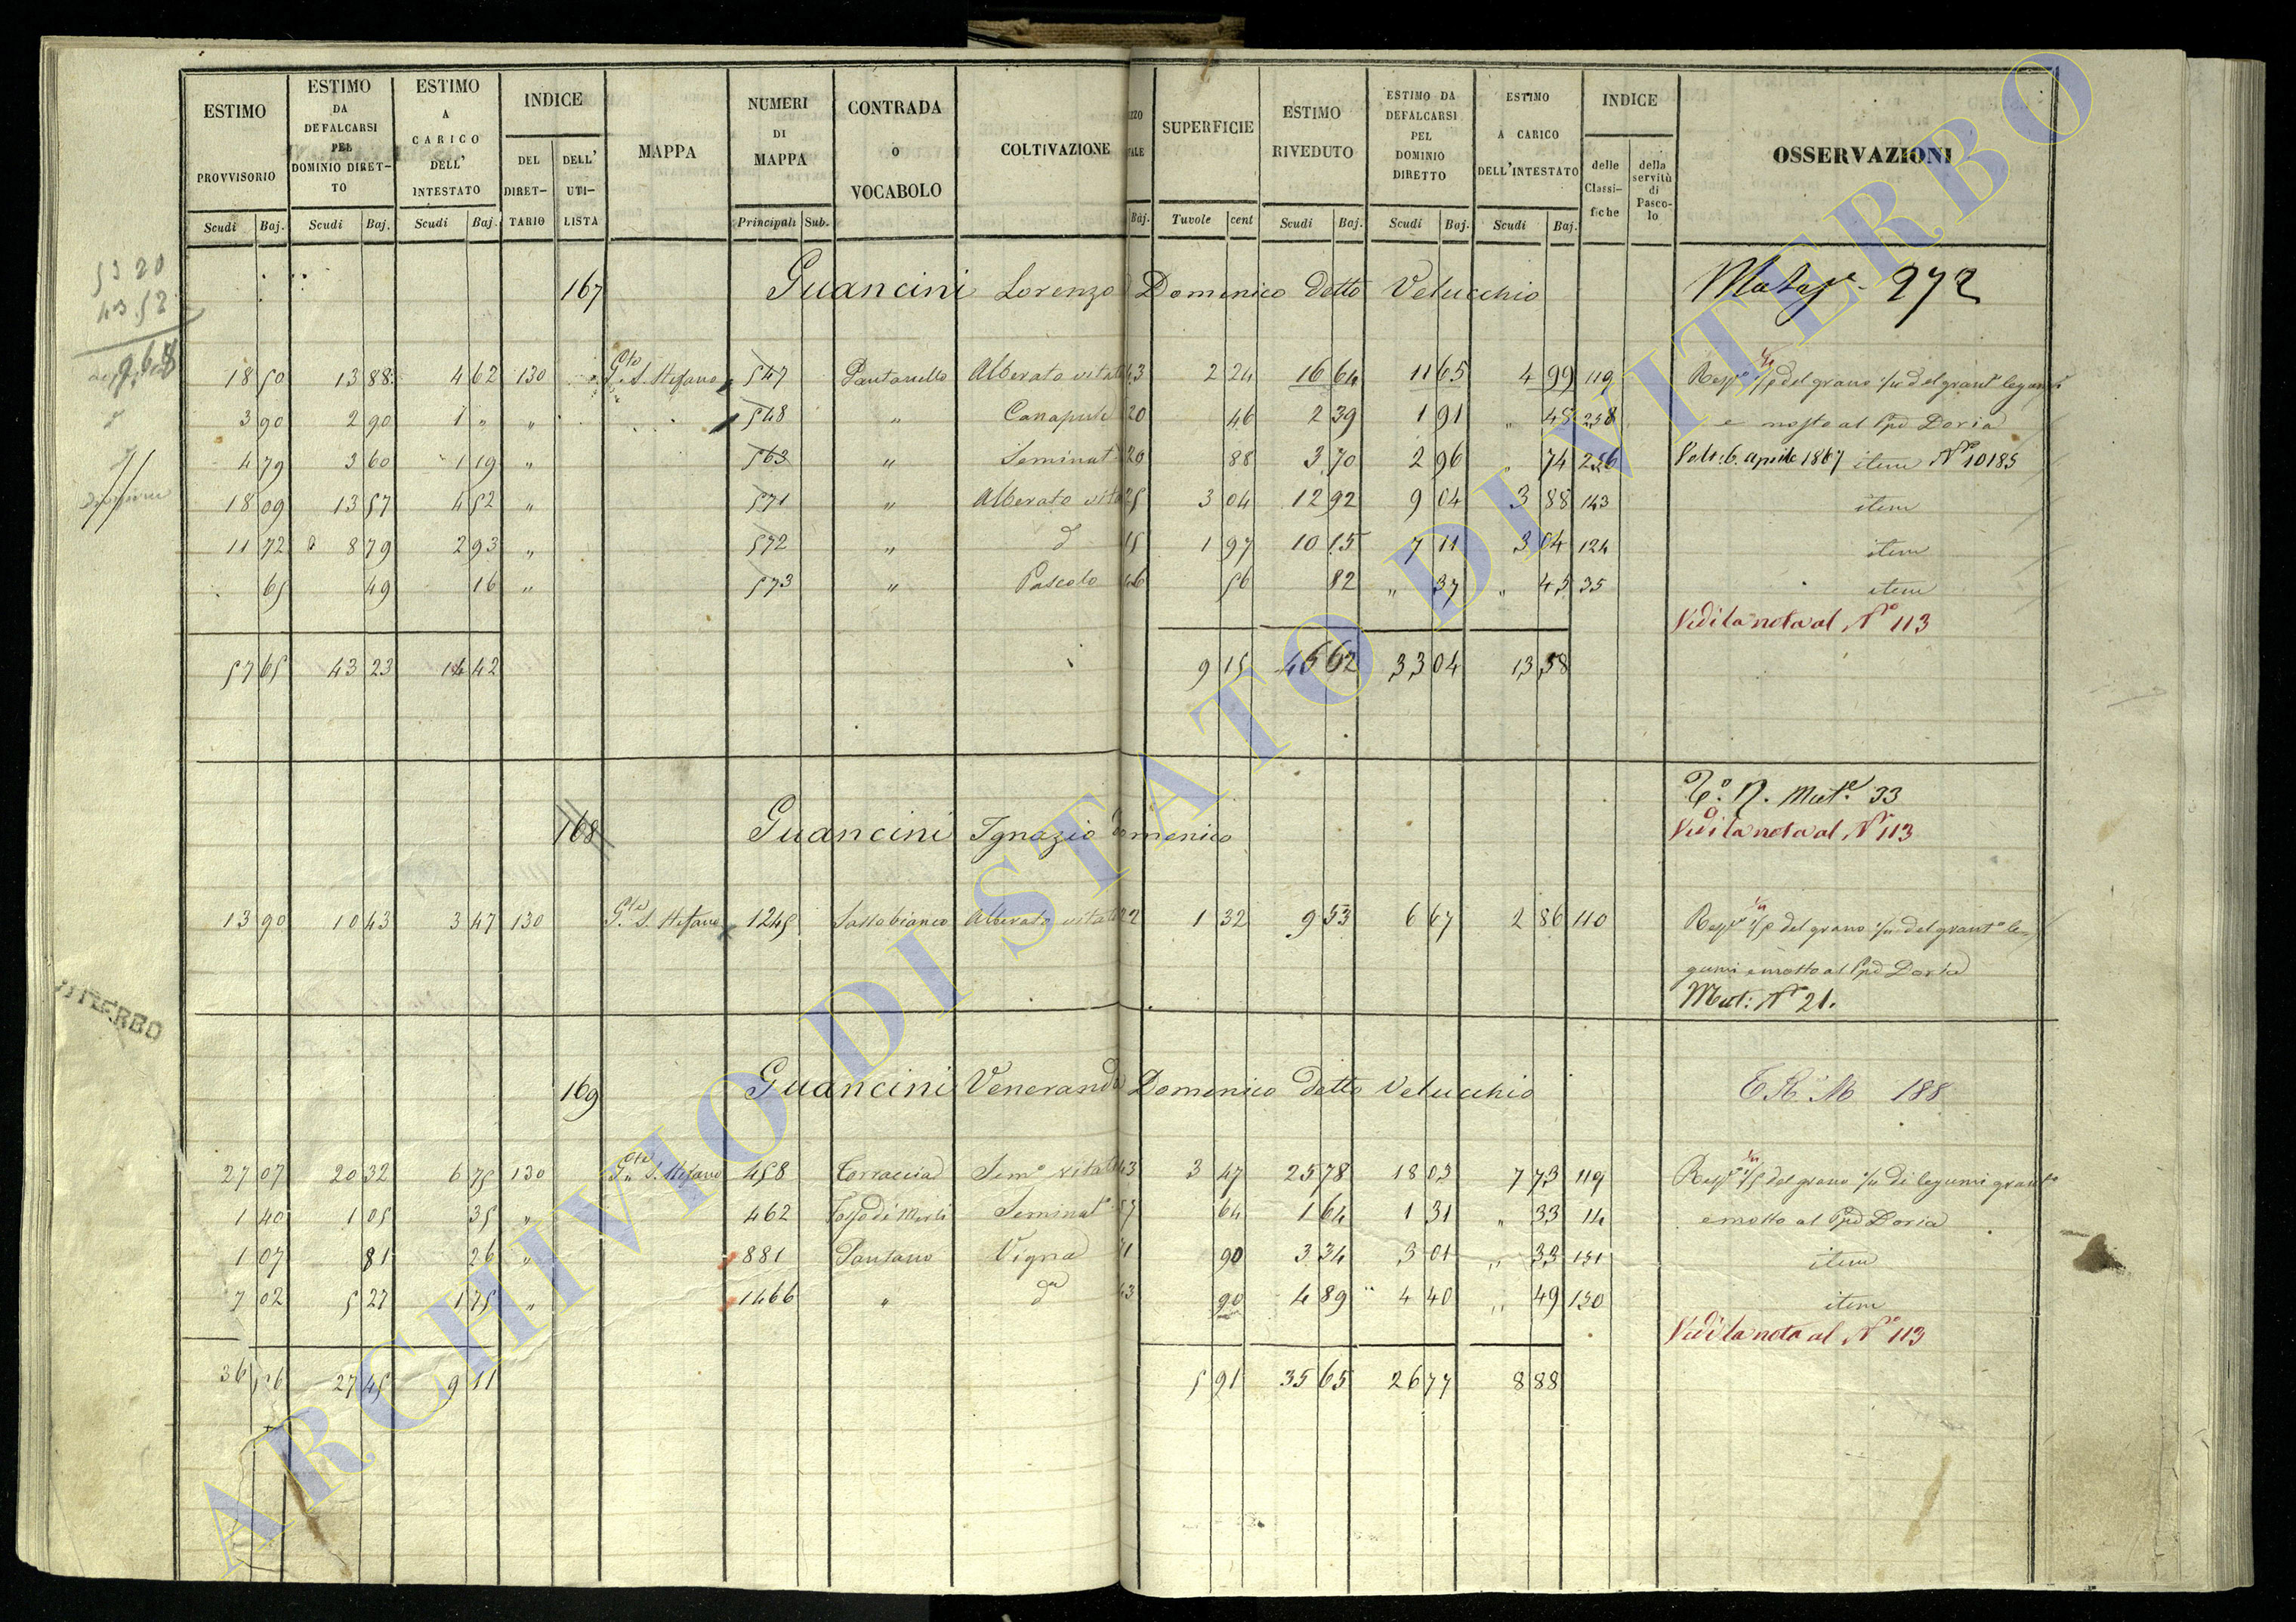 ESTIMO PROVVISORIO Scudi Baj.
ESTIMO DA DEFALCARSI PEL DOMINIO DIRETTO Scudi Baj.
ESTIMO A CARICO DELL' INTESTATO Scudi Baj.
INDICE DEL DIRETTARIO DELL' UTILISTA
MAPPA
NUMERI DI MAPPA Principali Sub.
CONTRADA O VOCABOLO
COLTIVAZIONE
Baj.
SUPERFICIE Tavole cent
ESTIMO RIVEDUTO Scudi Baj.
ESTIMO DA DEFALCARSI PEL DOMINIO DIRETTO Scudi Baj.
ESTIMO A CARICO DELL'INTESTATO Scudi Baj.
INDICE delle Classifiche della servitù di Pascolo
OSSERVAZIONI
53 20
43 52
9 68
167 Guancini Lorenzo Domenico detto Velucchio 272
18 50 13 88 4 62 130 S. Stefano 547 Pantanello Alberato vitato 43 2 24 16 64 11 65 4 99 119 del grano
3 90 2 90 1 „ „ 548 „ Canapule 20 46 2 39 1 91 „ 48 258 e mosto al Doria
4 79 3 60 1 19 „ 563 „ Seminat 20 88 3 70 2 96 74 256 6. aprile 1867 item N° 10185
18 09 13 57 4 52 „ 571 „ Alberato vitato 25 3 04 12 92 9 04 3 88 143 item
11 72 8 79 2 93 „ 572 „ d 15 1 97 10 15 7 11 3 04 124 item
65 49 16 „ 573 „ Pascolo 46 56 82 „ 37 „ 45 35 item
Vedi la nota al N° 113
57 65 43 23 14 42 9 15 46 62 33 04 13 58
Mut.e 33
168 Guancini Ignazio Domenico Vedi la nota al N° 113
13 90 10 43 3 47 130 S. Stefano 1245 Sassobianco Alberato vitato 22 1 32 9 53 6 67 2 86 110 del grano
gumi e mosto al Doria
Mut: N° 21.
VITERBO
169 Guancini Veneranda Domenico detto Velucchio 188
27 07 20 32 6 75 130 S. Stefano 458 Torraccia Sem° vitato 43 3 47 25 78 18 03 7 73 119 del grano di legumi
1 40 1 05 35 „ 462 Seminat 57 64 1 64 1 31 „ 33 14 e mosto al Doria
1 07 81 26 „ 881 Pantano Vigna 71 90 3 34 3 01 „ 33 151 item
7 02 5 27 1 75 „ 1466 „ d 43 90 4 89 4 40 „ 49 150 item
Vedi la nota al N° 113
36 56 27 45 9 11 5 91 35 65 26 77 8 88
ARCHIVIO DI STATO DI VITERBO